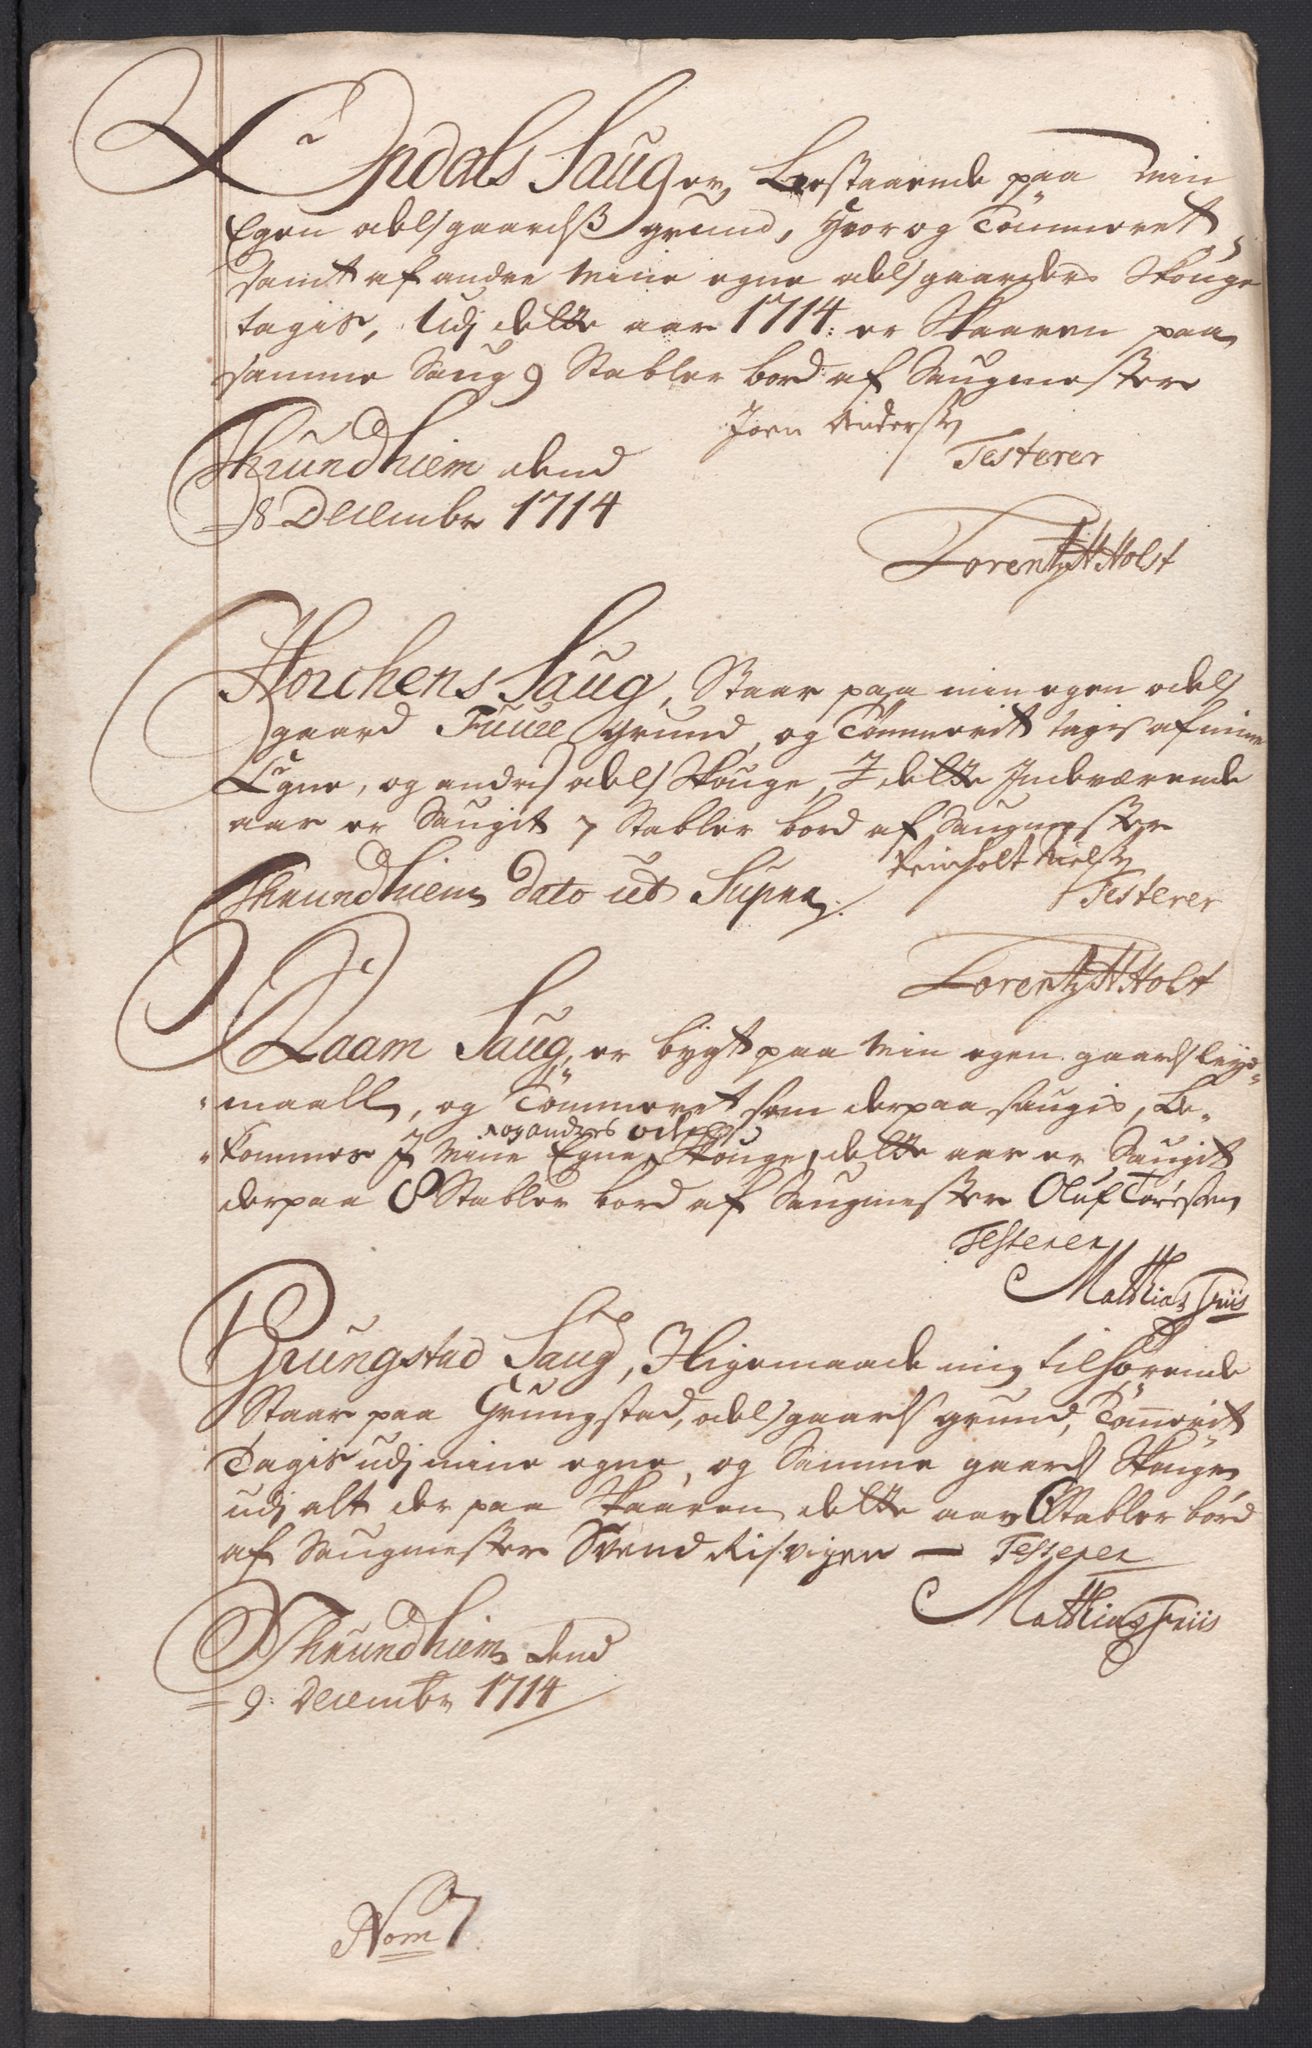 Opdals Saug er, Bestaaende paa min
Egen odelsgaardß grund, Hvor og Tømmeret
samt af andre mine egne odelsgaarders Skouge
tagis, Udj dette aar 1714: er Skaaren paa
samme Saug 9 Stabler bord af Saugmester
Joen Anderss:
Thrundhiem dend
Testerer
8 Decembr 1714
Lorentz H Holst
Horchens Saug, Staar paa min egen odels
gaard Fuuee grund, og Tømmerit tagis af mine
Egne, og andris odels Skouge, I dette Indeværende
aar er Saugit 7 Stabler bord af Saugmester
Reinholt Nielss:
Thrundhiem Dato ut Supra
Testerer
Lorentz H Holst
Raam Saug, er bygt paa min egen gaards leye-
maall, og Tømmeret som derpaa saugis, be-
og andres odels
kommes I mine Egne Skouge, dette aar er Saugit
derpaa 8 Stabler bord af Saugmester Oluf Toresen
Testerer
Matthias Friis
Grungstad Saug, I ligemaade mig tilhørende
Staar paa Grungstad, odelsgaards grund, Tømerit
Tagis udj mine egne, og Samme gaards Skouge
udj alt der paa Skaaren dette aar 6 Stabler bord
af Saugmester Svend Risvigen — Testerer
Matthias Friis
Thrundhiem Dend
9: Decembr 1714
Nom 7